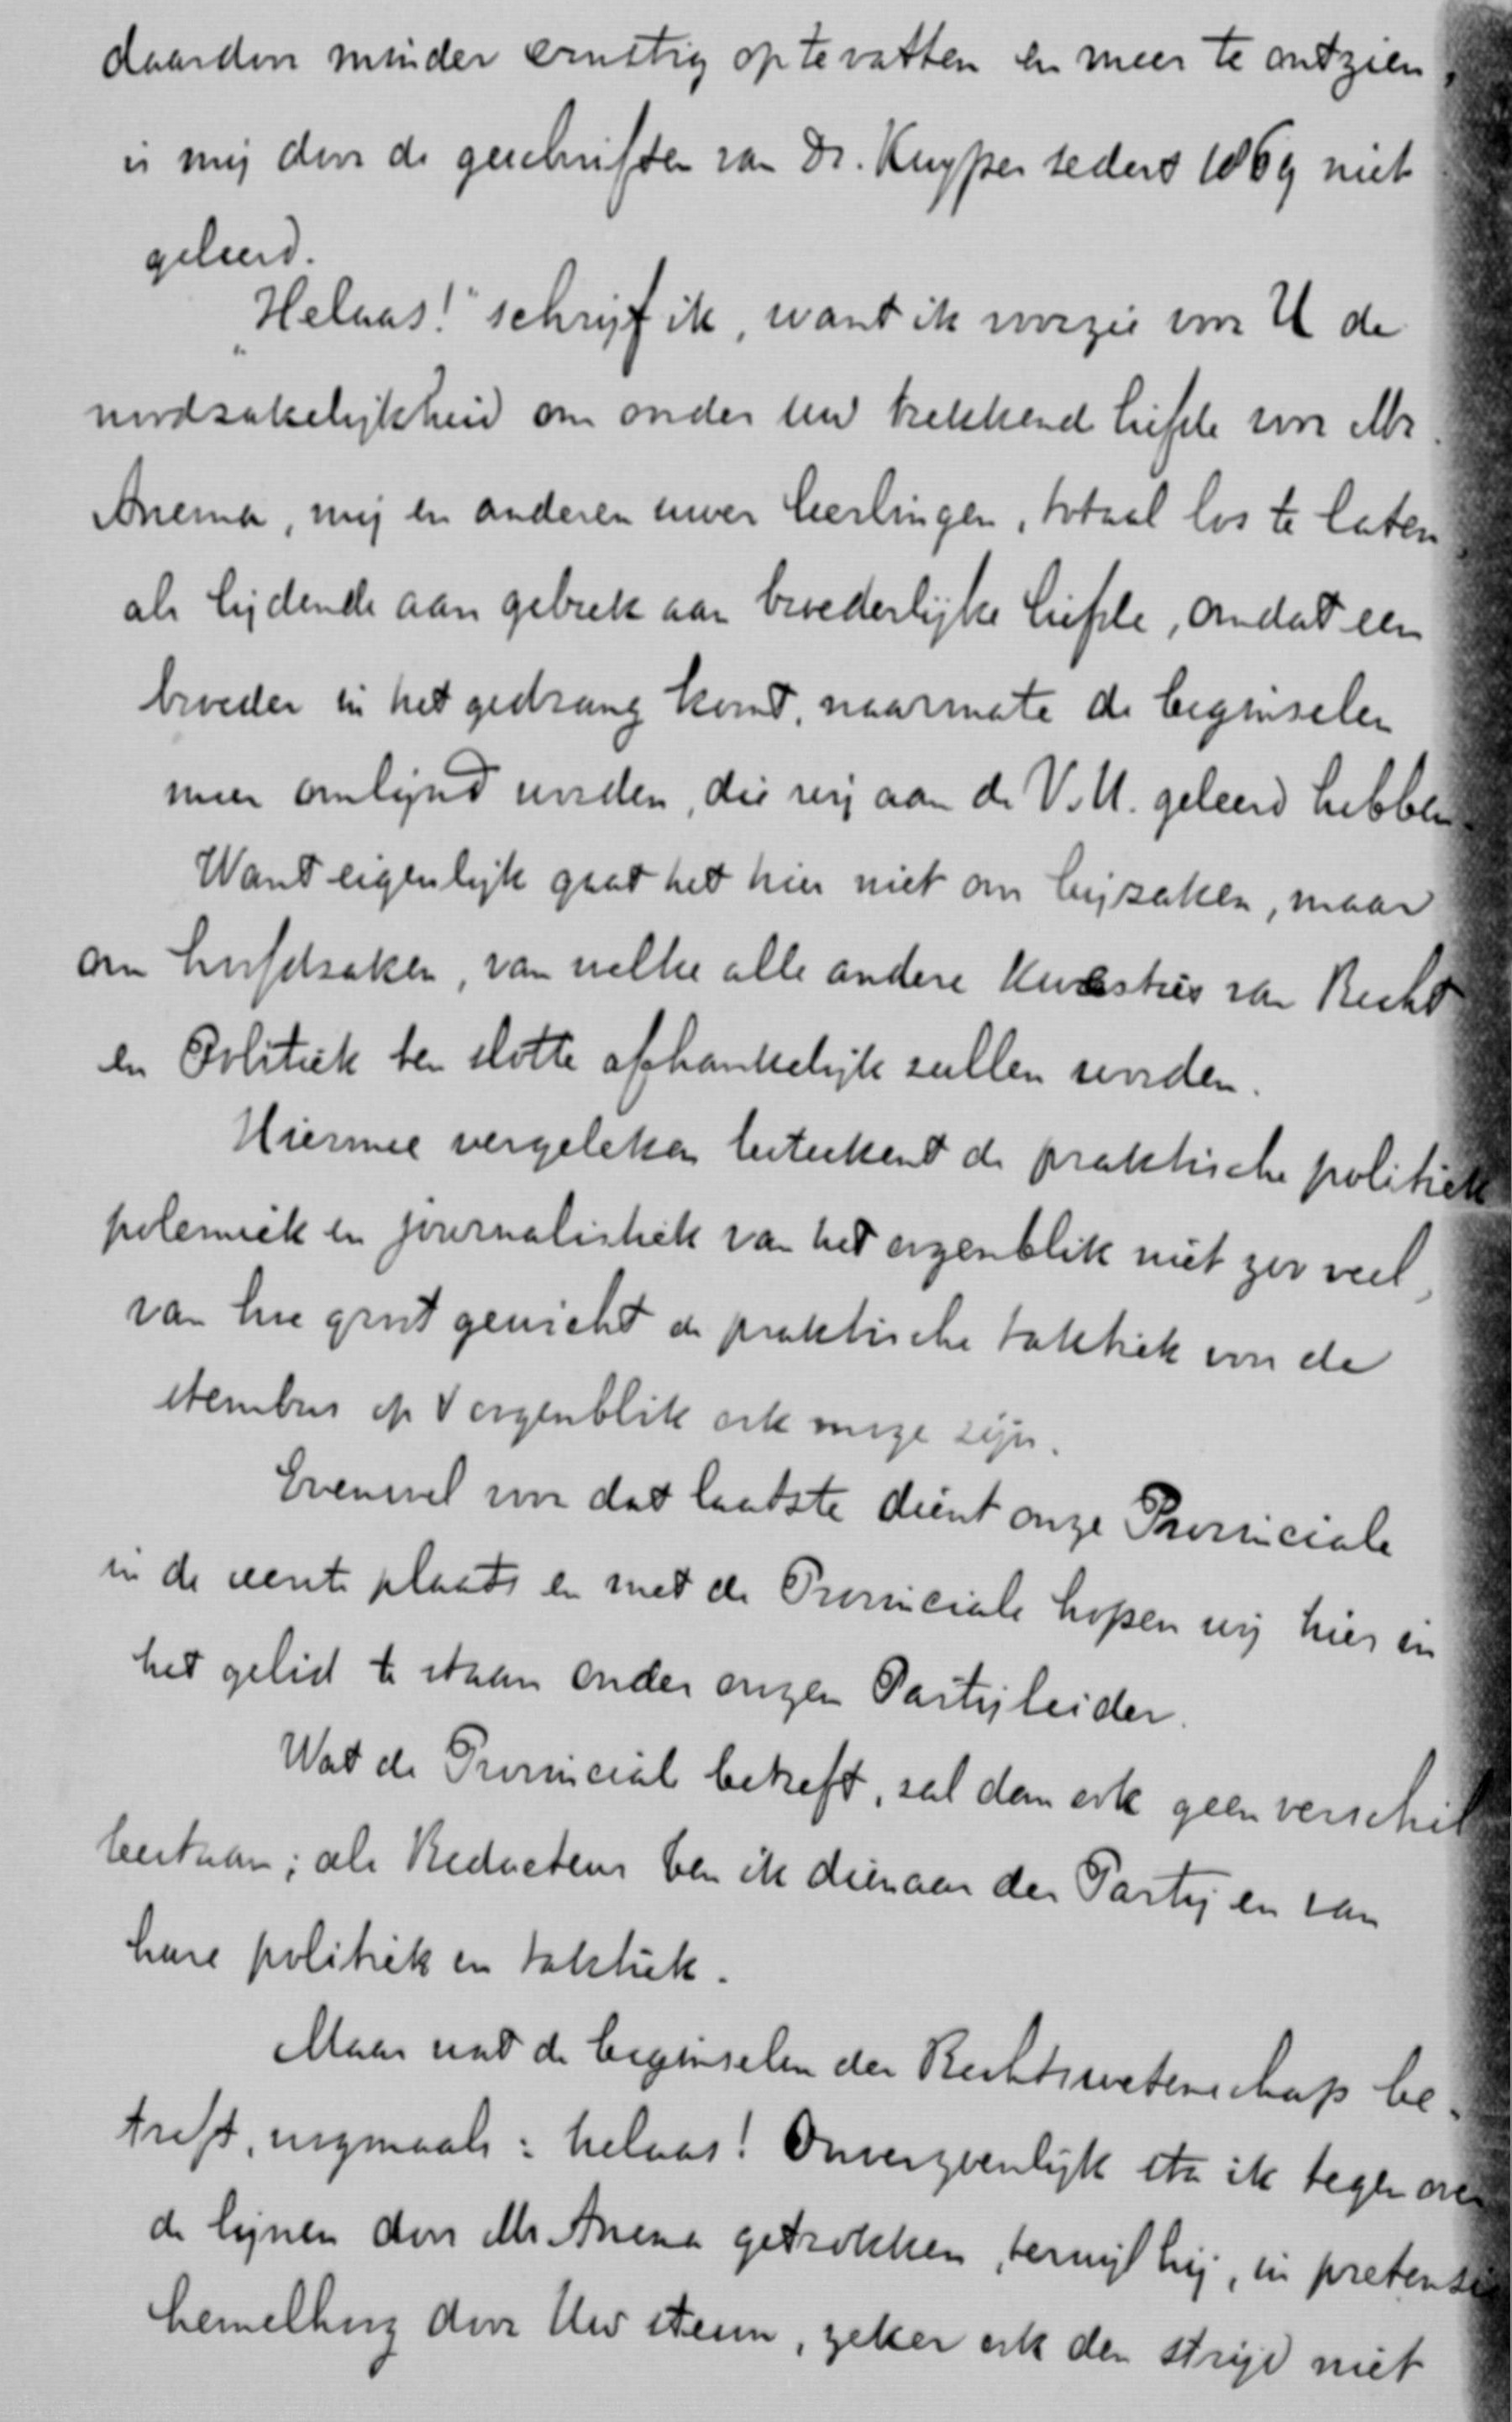 daardoor minder ernstig op te vatten en meer te ontzien,
is mij door de geschriften van Dr. Kuyper sedert 1869 niet
geleerd.
"Helaas!" schrijf ik, want ik voorzie voor U de
noodzakelijkheid om onder uw trekkend liefde voor Mr.
Anema, mij en anderen uwer leerlingen, totaal los te laten,
als lijdende aan gebrek aan broederlijke liefde, omdat een
broeder in het gedrang komt, naarmate de beginselen
meer omlijnd worden, die wij aan de V.U. geleerd hebben.
Want eigenlijk gaat het hier niet om bijzaken, maar
om hoofdzaken, van welke alle andere kwesties van Recht
en Politiek ten slotte afhankelijk zullen worden.
Hiermee vergeleken beteekent de praktische politiek
polemiek en journalistiek van het oogenblik niet zoo veel,
van hoe groot gewicht de praktische taktiek voor de
stembus op 't oogenblik ook moge zijn.
Evenwel voor dat laatste dient onze Provinciale
in de eerste plaats en met de Provinciale hopen wij hier in
het gelid te staan onder onzen Partijleider.
Wat de Provinciale betreft, zal dan ook geen verschil
bestaan; als Redacteur ben ik dienaar der Partij en van
hare politiek en taktiek.
Maar wat de beginselen der Rechtswetenschap be-
treft, nogmaals: helaas! Onverzoenlijk sta ik tegenover
de lijnen door Mr Anema getrokken, terwijl hij, in pretensie
hemelhoog door Uw steun, zeker ook den strijd niet